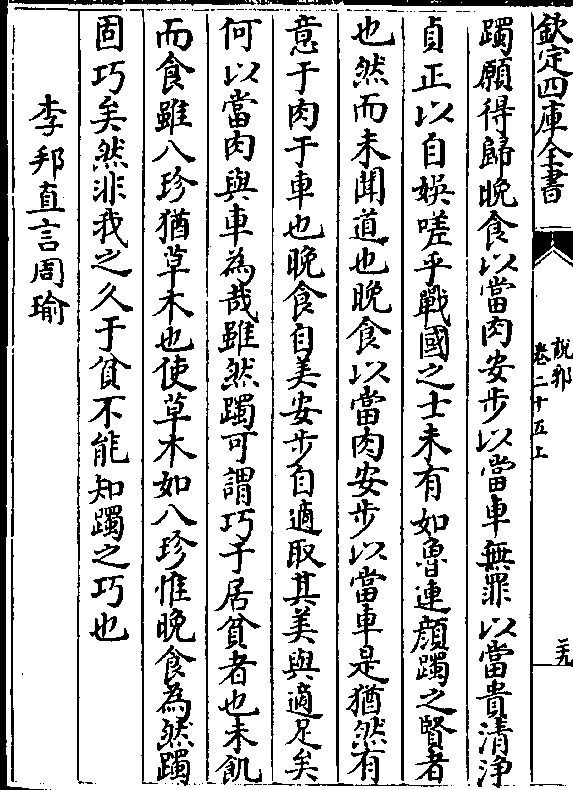 欽定四庫全書
說郛
卷二十五上
二十九
蠋願得歸晚食以當肉安步以當車無罪以當貴清淨
貞正以自娛嗟乎戰國之士未有如魯連顔蠋之賢者
也然而未聞道也晚食以當肉安步以當車是猶然有
意于肉于車也晚食自美安步自適取其美與適足矣
何以當肉與車為哉雖然蠋可謂巧于居貧者也未飢
而食雖八珍猶草木也使草木如八珍惟晚食為然蠋
固巧矣然非我之久于貧不能知蠋之巧也
李邦直言周瑜